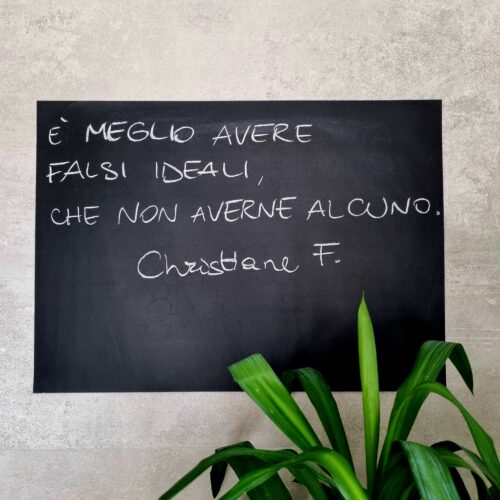 È MEGLIO AVERE
FALSI IDEALI,
CHE NON AVERNE ALCUNO.
Christiane F.